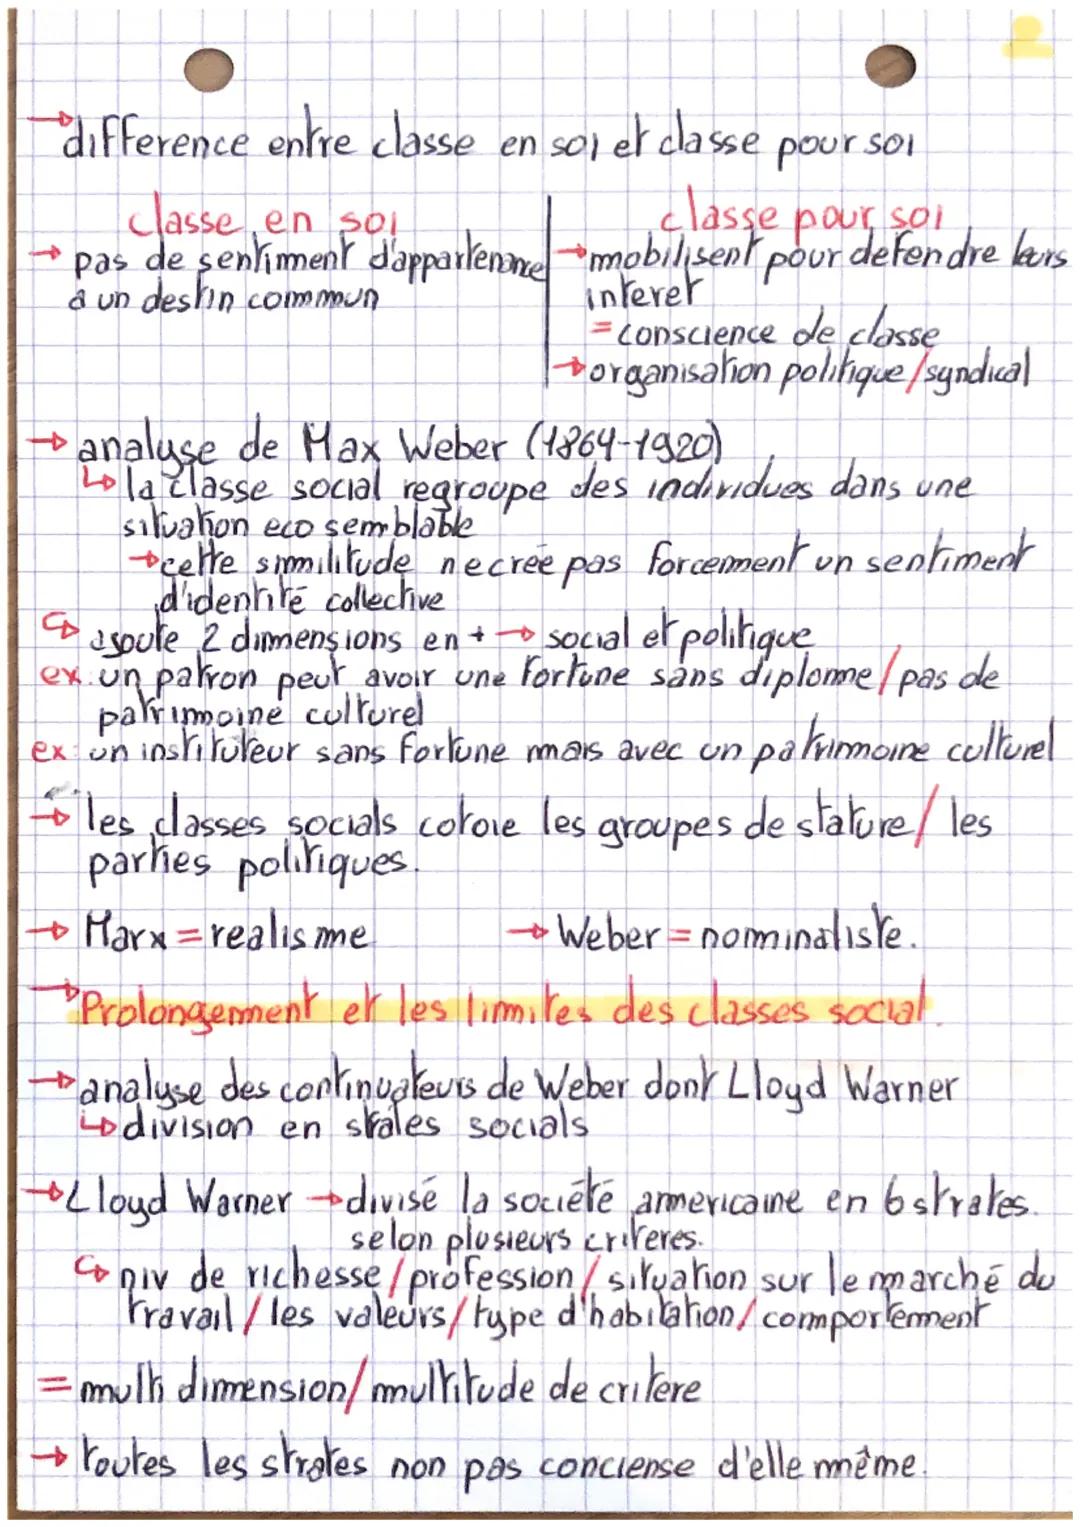 → difference entre classe en soi et classe pour soi
classe en soi
→ pas de sentiment d'appartenance
a un destin commun
classe pour soi
→ mobilisent pour defendre leurs
interet
= conscience de classe
→ organisation politique/syndical
→ analyse de Max Weber (1864-1920)
↳ la classe social regroupe des individues dans une
situation eco semblable
→ cette similitude necrée pas forcement un sentiment
d'identité collective
↳ ajoute 2 dimensions en + → social et politique
ex: un patron peut avoir une fortune sans diplome/pas de
patrimoine culturel
ex: un instituteur sans fortune mais avec un patrimoine culturel
→ les classes socials cotoie les groupes de stature/ les
parties politiques.
→ Marx = realisme → Weber = nominaliste.
→ Prolongement et les limites des classes social.
→ analyse des continuateurs de Weber dont Lloyd Warner
↳ division en strates socials
→ Lloyd Warner → divisé la société americaine en 6 strates.
selon plusieurs criteres.
↳ niv de richesse/profession/situation sur le marché du
travail/les valeurs/type d'habitation/comportement
= multi dimension/multitude de critere
→ toutes les strates non pas conciense d'elle même.